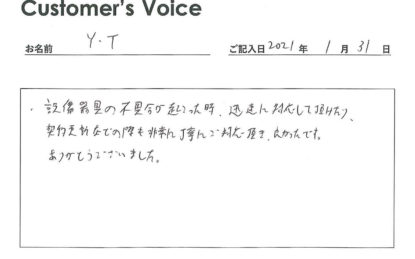 Customer's Voice
お名前 Y・T ご記入日 2021年 1月 31日
・設備器具の不具合が起こった時、迅速に対応して頂けたり、
契約更新などの際も非常に丁寧にご対応頂き、良かったです。
ありがとうございました。